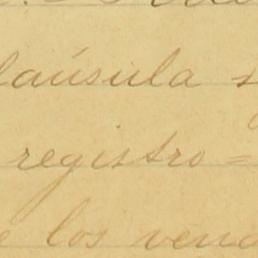 claúsula
registro =
de los vend